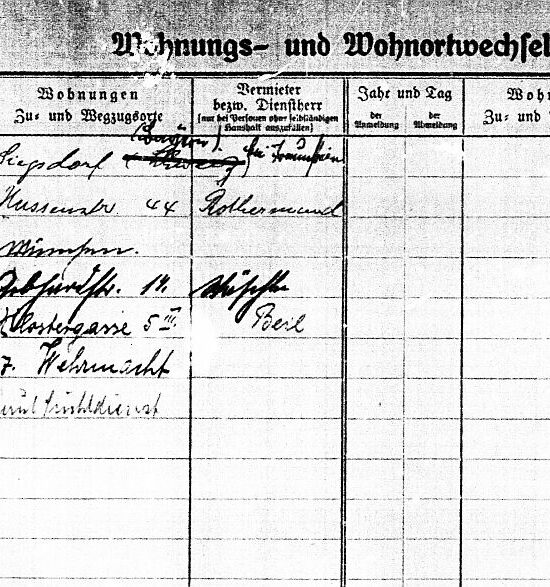 Wohnungs- und Wohnortwechsel
Wohnungen
Zu- und Wegzugsorte
Vermieter
bezw. Dienstherr
(nur bei Personen ohne selbständigen
Haushalt auszufüllen)
Jahr und Tag
der
Anmeldung
der
Abmeldung
Wohn
Zu- und
(Bayern)
Siegsdorf bei Traunstein
Hussenstr 44 Rothermund
München.
Gebhardstr. 14.
Klostergasse 5 III. Beil
z. Wehrmacht